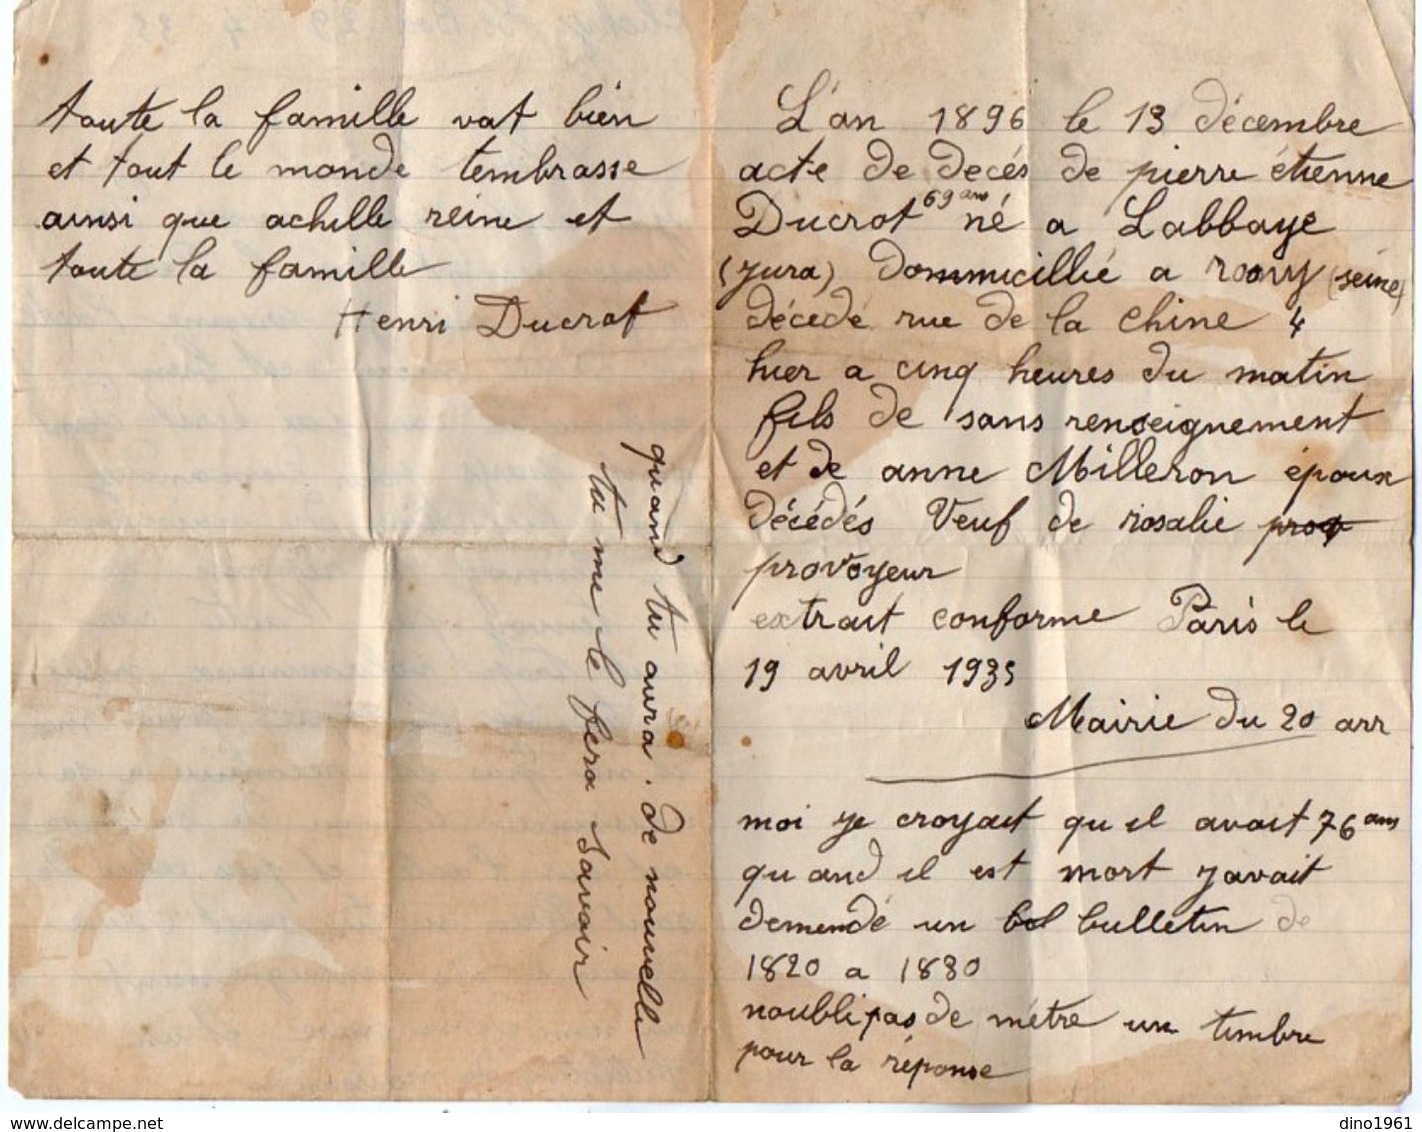 toute la famille vat bien
et tout le monde tembrasse
ainsi que achille reine et
toute la famille
Henri Ducrot
quand tu aura. de nouvelle
tu me le fera savoir
L'an 1896 le 13 décembre
acte de decés de pierre étienne
Ducrot 69 ans né a Labbaye
(jura) Dommicillié a (seine)
décédé rue de la Chine 4
hier a cinq heures du matin
fils de sans renseignement
et de anne Milleron époux
décédés Veuf de rosalie
provoyeur
extrait conforme Paris le
19 avril 1935
Mairie du 20 arr
moi je croyait qu il avait 76 ans
quand il est mort javait
demendé un bulletin de
1820 a 1830
noubli pas de métre un timbre
pour la réponse
delcampe.net
dino1961